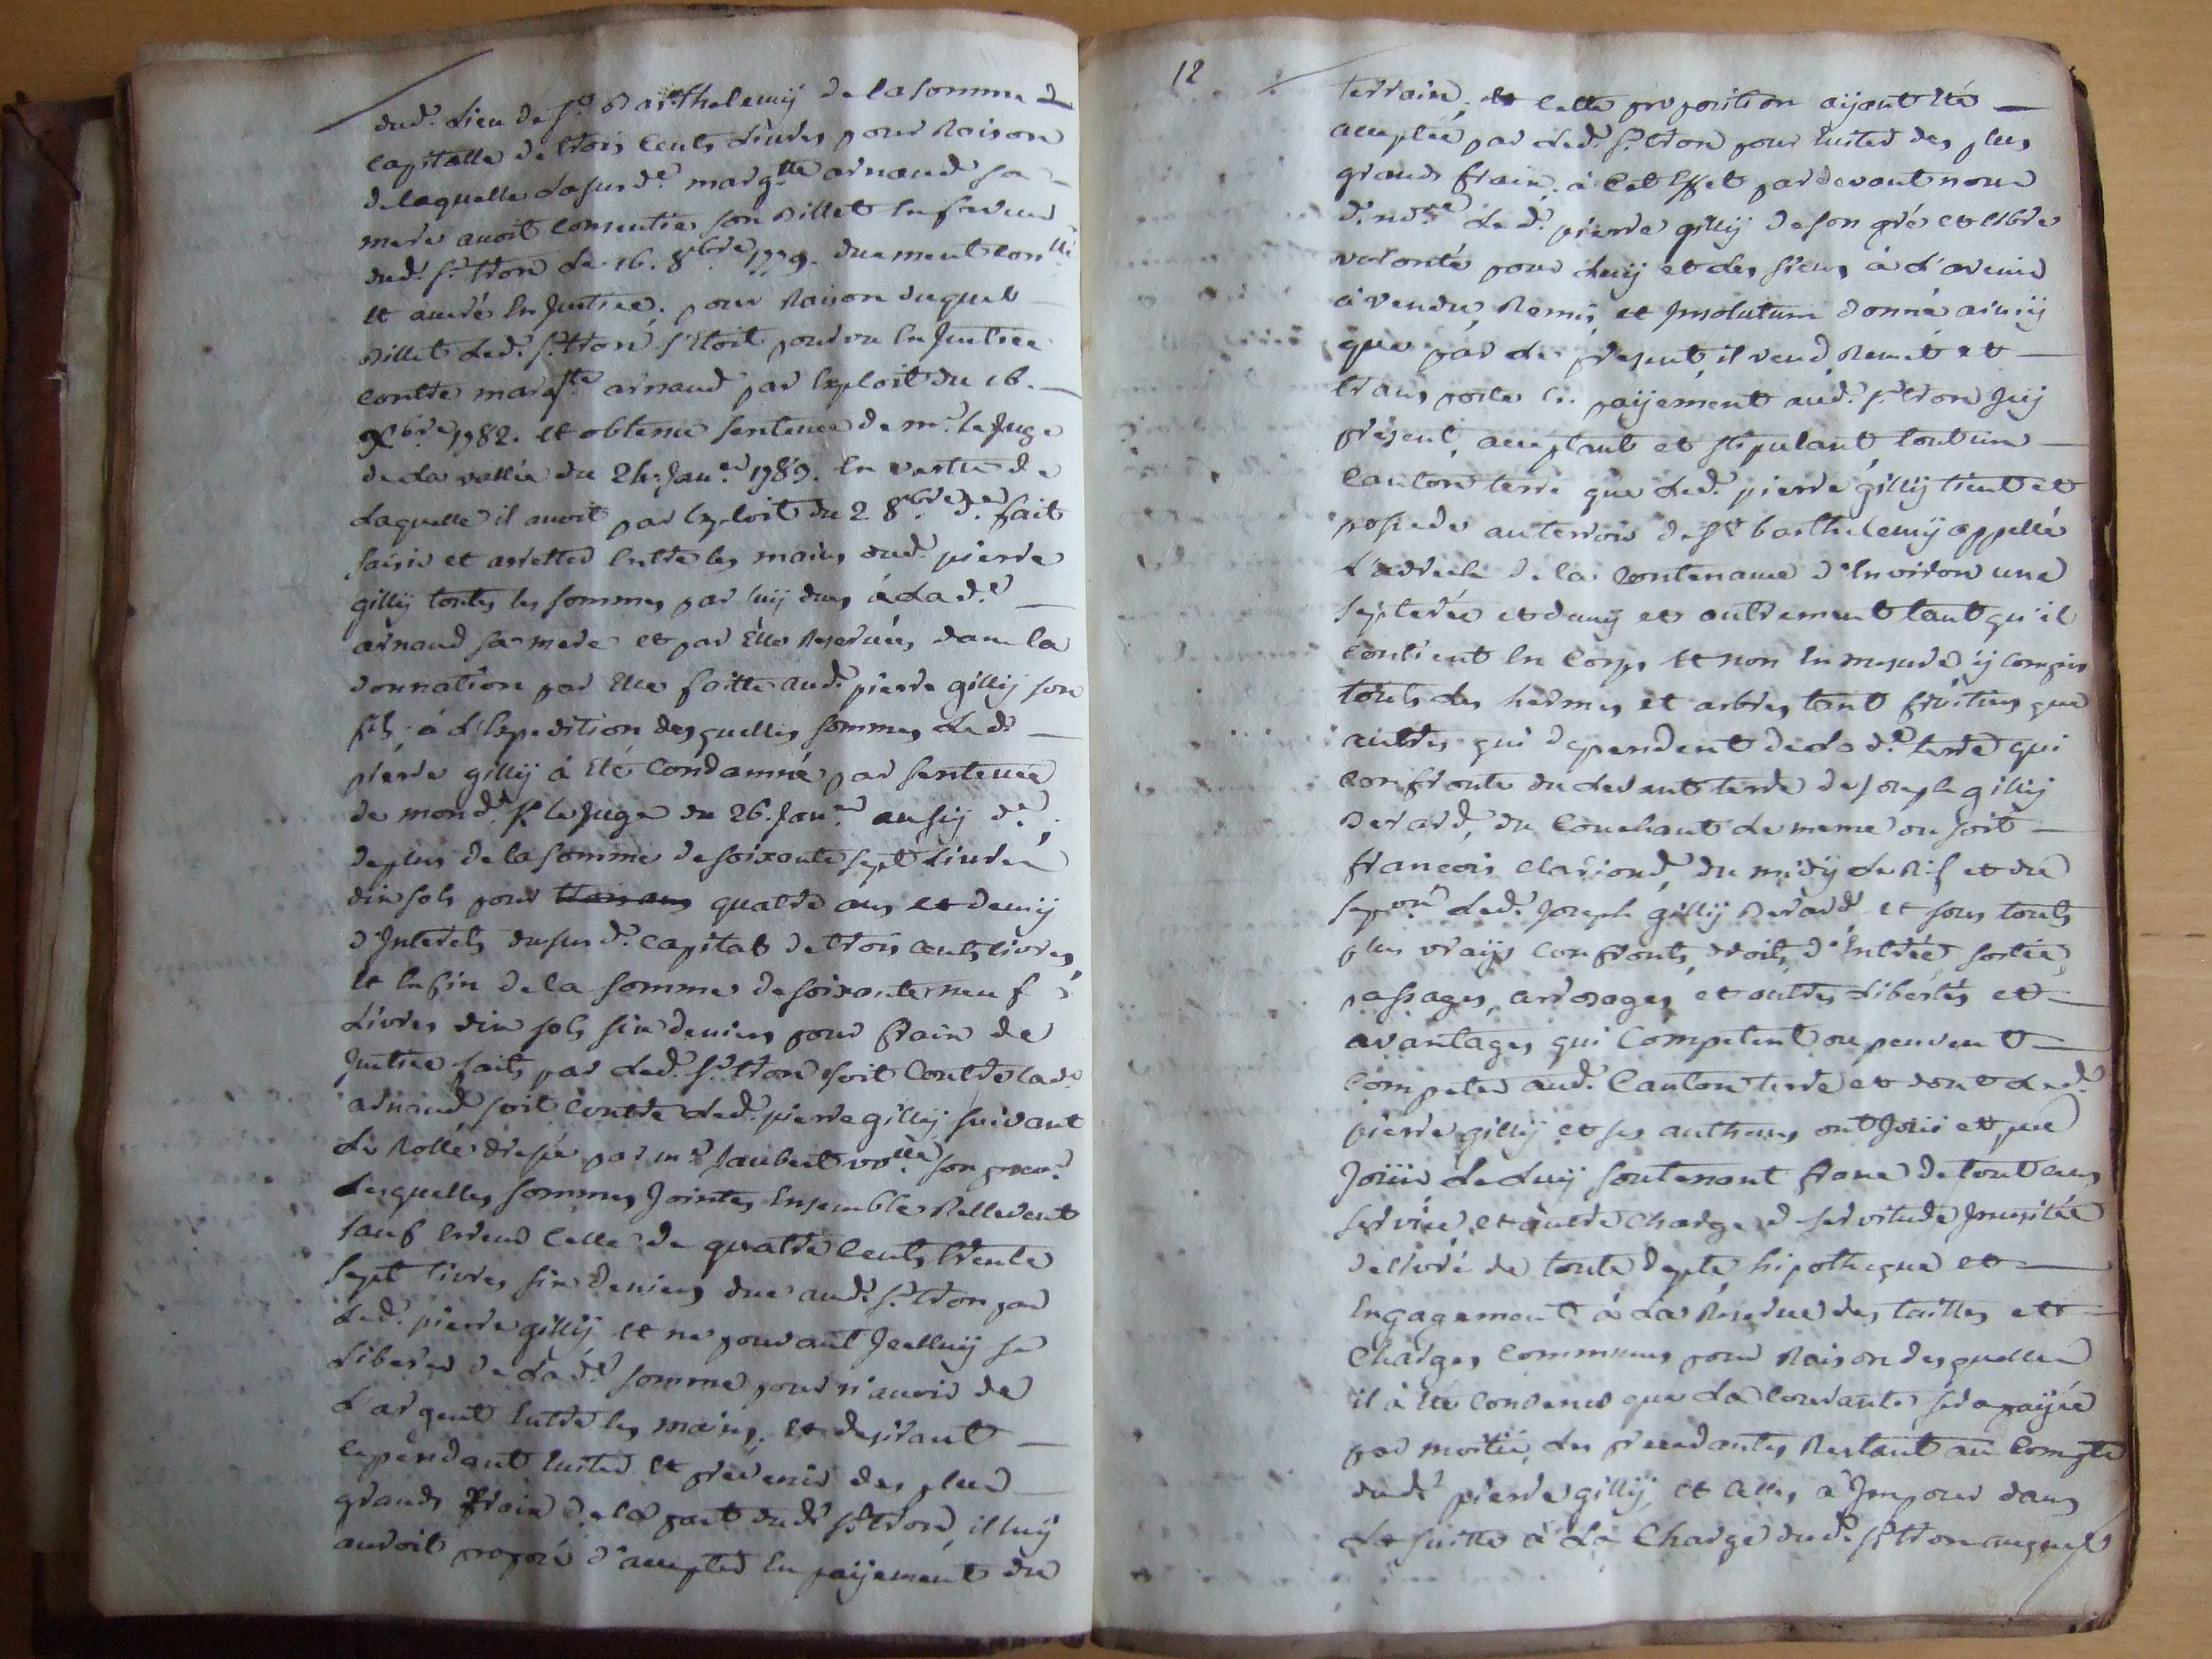 dud.t Lieu de S.t Barthelemÿ de la somme de
capitalle de trois cents Livres pour Raison
de laquelle La susd.e marg.tte arnaud sa
mere avoit consentie son Billet En faveur
dud.t S.r tron Le 16. 8bre 1779. duement con.llé
et averé En Justice, pour Raison duquel
Billet Led.t S.r tron s'Etoit pourvu En Justice
contre marg.tte arnaud par Exploit du 16.
Xbre 1782. et obtenu sentence de m.r le Juge
de La vallée du 24. Janv.er 1783. En vertu de
Laquelle il avoit par Exploit du 2 8bre d.er fait
saisir et arretter Entre les mains dud.t pierre
gillÿ toutes les sommes par luÿ dues à Lad.e
arnaud sa mere et par Elle Reservées dans la
donnation par Elle faitte aud.t pierre gillÿ son
fils, à L'Expedition desquelles sommes Led.t
pierre gillÿ à Eté Condamné par sentence
de mond.t S.r le Juge du 26. Janv.er aussÿ d.er,
de plus de la somme de soixante sept Livres
dix sols pour trois ans quatre ans et demÿ
d'Interets du susd.t Capital de trois cents livres,
et Enfin de la somme de soixante neuf
Livres dix sols six deniers pour frais de
Justice faits par Led.t S.r tron soit Contre lad.e
arnaud soit contre Led.t pierre gillÿ suivant
Le Rolle dressé par m.e Jaubert son procu.r
Lesquelles sommes Jointes Ensemble Rellevent
sauf Erreur Celle de quatre Cents trente
sept livres six deniers due aud.t S.r tron par
Led.t pierre gillÿ, et ne pouvant Icelluÿ se
Liberer de Lad.e somme pour n'avoir de
L'argent Entre les mains, et desirant
cependant Eviter et prevenir des plus
grands frais de la part dud.t S.r tron, il luÿ
auroit proposé d'accepter En paÿement du
12
terrain, et cette proposition aÿant Eté
acceptée par Led.t S.r tron pour Eviter des plus
grands frais. à Cet Effet pardevant nous
d.t no.re Led.t pierre gillÿ de son gré et libre
volonté pour Luÿ et Les siens à L'avenir
à vendu, Remis, et Insolutum donné ainsÿ
que par Le present, il vend, Remet et
transporte En paÿement aud.t S.r tron Icÿ
present, acceptant et stipulant, tout un
Canton terre que Led.t pierre gillÿ tient et
possede au terroir de S.t barthelemÿ appellé
L'adrech de la Contenance d'Environ une
septerée et demÿ et autrement tant qu'il
contient En Corps et non En mesure ÿ compris
touts Les hermes et arbres tant fruitiers que
autres qui dependent de Lad.e terre qui
confronte du Levant terre de Joseph gillÿ
Berard, du Couchant Le meme ou soit
francois clariond, du midÿ Le Rif et du
sep.on Led.t Joseph gillÿ Berard, et sous touts
plus vraÿs confronts, droits d'Entrée, sortie,
passages, arrosages, et autres Libertés et
avantages qui Competent ou peuvent
competer aud.t Canton terre et dont Led.t
pierre gillÿ et ses autheurs ont Joüi et pu
Joüir Le Luÿ soutenant franc de tout cens
service et autre charge et servitude Inusitée
delivré de toute depte, hipotheque et
Engagement à La Reserve des tailles et
Charges Communes pour Raison desquelles
il à Eté convenu que La Courante sera paÿée
par moitié, Les precedantes Restant au Compte
dud.t pierre gillÿ, et Celles à Imposer dans
La suitte à La Charge dud.t S.r tron auquel